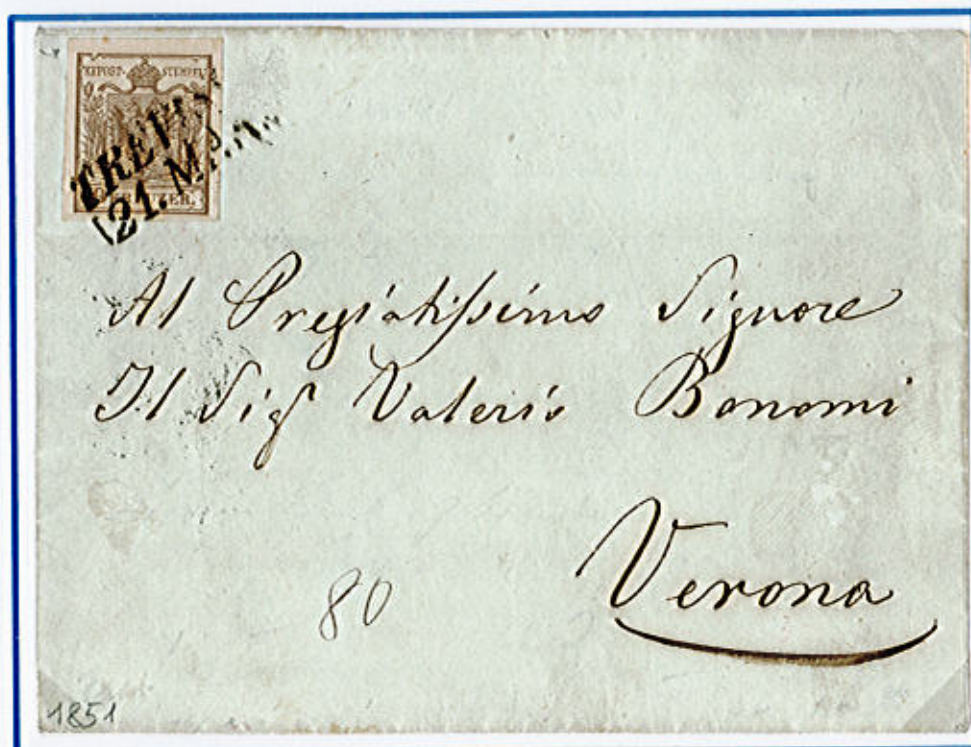 KKPOST-STEMPEL
21. M
Al Pregiatissimo Signore
Il Sigr Valerio Bonomi
Verona
80
1851